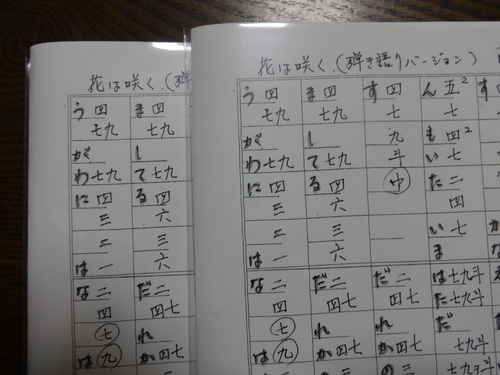 花は咲く.(弾
う四 ま四
七九 七九
が し
わ七九 て七九
に四 る四
三 六
二 三
は一 六
な二 だ二
四 四七
七 れ
は九 か四七
花は咲く.(弾き語りバージョン)
う四 ま四 す四 ん五2 す
七九 七九 七 七
が し 九 も四2
わ七九 て七九 斗 い七
に四 る四 巾 た二
三 六 四
二 三 い七 か
は一 六 ま な
な二 だ二 だ二 は七九斗
四 四七 四七 た七九斗
七 れ れ だ
は九 か四七 か四七 七九斗